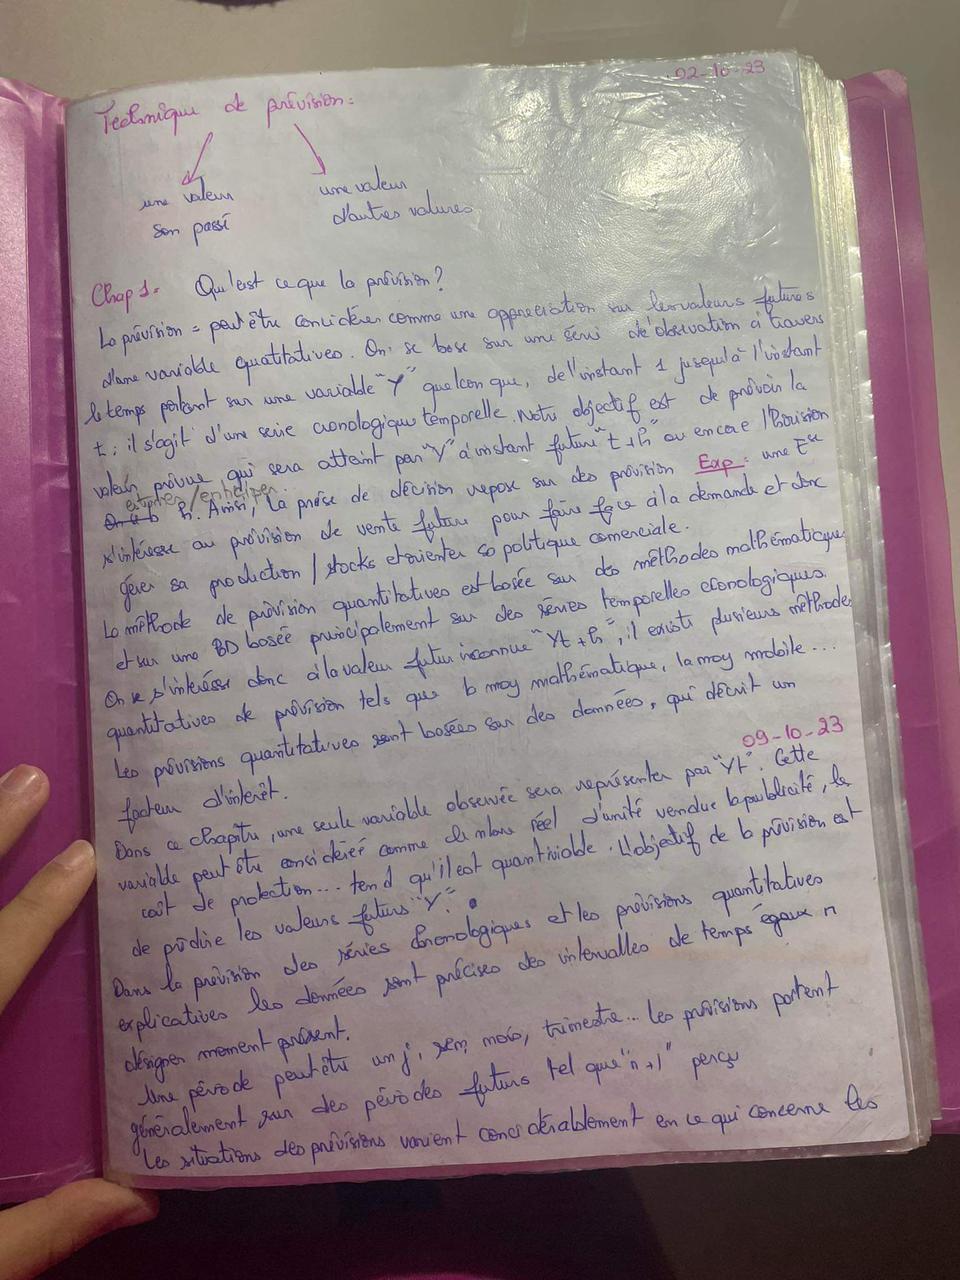 02-10-23
Technique de prévision:
une valeur
son passé
une valeur
d'autres valures
Chap 1: Qu'est ce que la prévision?
La prévision = peut être considérer comme une appreciation sur les valeurs futures
d'une variable quatitatives. On se base sur une séri de observation à travers
le temps portant sur une variable "Y" quelconque, de l'instant 1 jusqu'à l'instant
t; il s'agit d'une serie cronologique temporelle. Notre objectif est de prévoir la
valeur prévue qui sera atteint par "Y" à instant future "t+h" ou encore l'horision
h. Ainsi, la prise de décision repose sur des prévision Exp: une Ese
s'intéresse au prévision de vente future pour faire face à la demande et donc
gérer sa production / stocks et orienter sa politique comerciale.
La méthode de prévision quantitatives est basée sur des méthodes mathématiques
et sur une BD basée principalement sur des séries temporelles cronologiques.
On se s'intéresse donc à la valeur futur inconnue "Yt+h", il existe plusieurs méthodes
quantitatives de prévision tels que la moy mathématique, la moy mobile...
Les prévisions quantitatives sont basées sur des données, qui décrit un
facteur d'interêt.
09-10-23
Dans ce chapitre, une seule variable observée sera représenter par "Yt". Cette
variable peut être considérée comme le nbre réel d'unité vendue la publicité, le
coût de protection... tend qu'il est quantiviable. L'objectif de la prévision est
de prédire les valeurs futurs "Y".
Dans la prévision des séries chronologiques et les prévisions quantitatives
explicatives les données sont précises des intervalles de temps égaux n
désigner moment présent.
Une péiode peut être un j, sem, mois, trimestre... les prévisions portent
généralement sur des périodes futurs tel que "n+1" perçu
Les situations des prévisions varient considérablement en ce qui concerne les